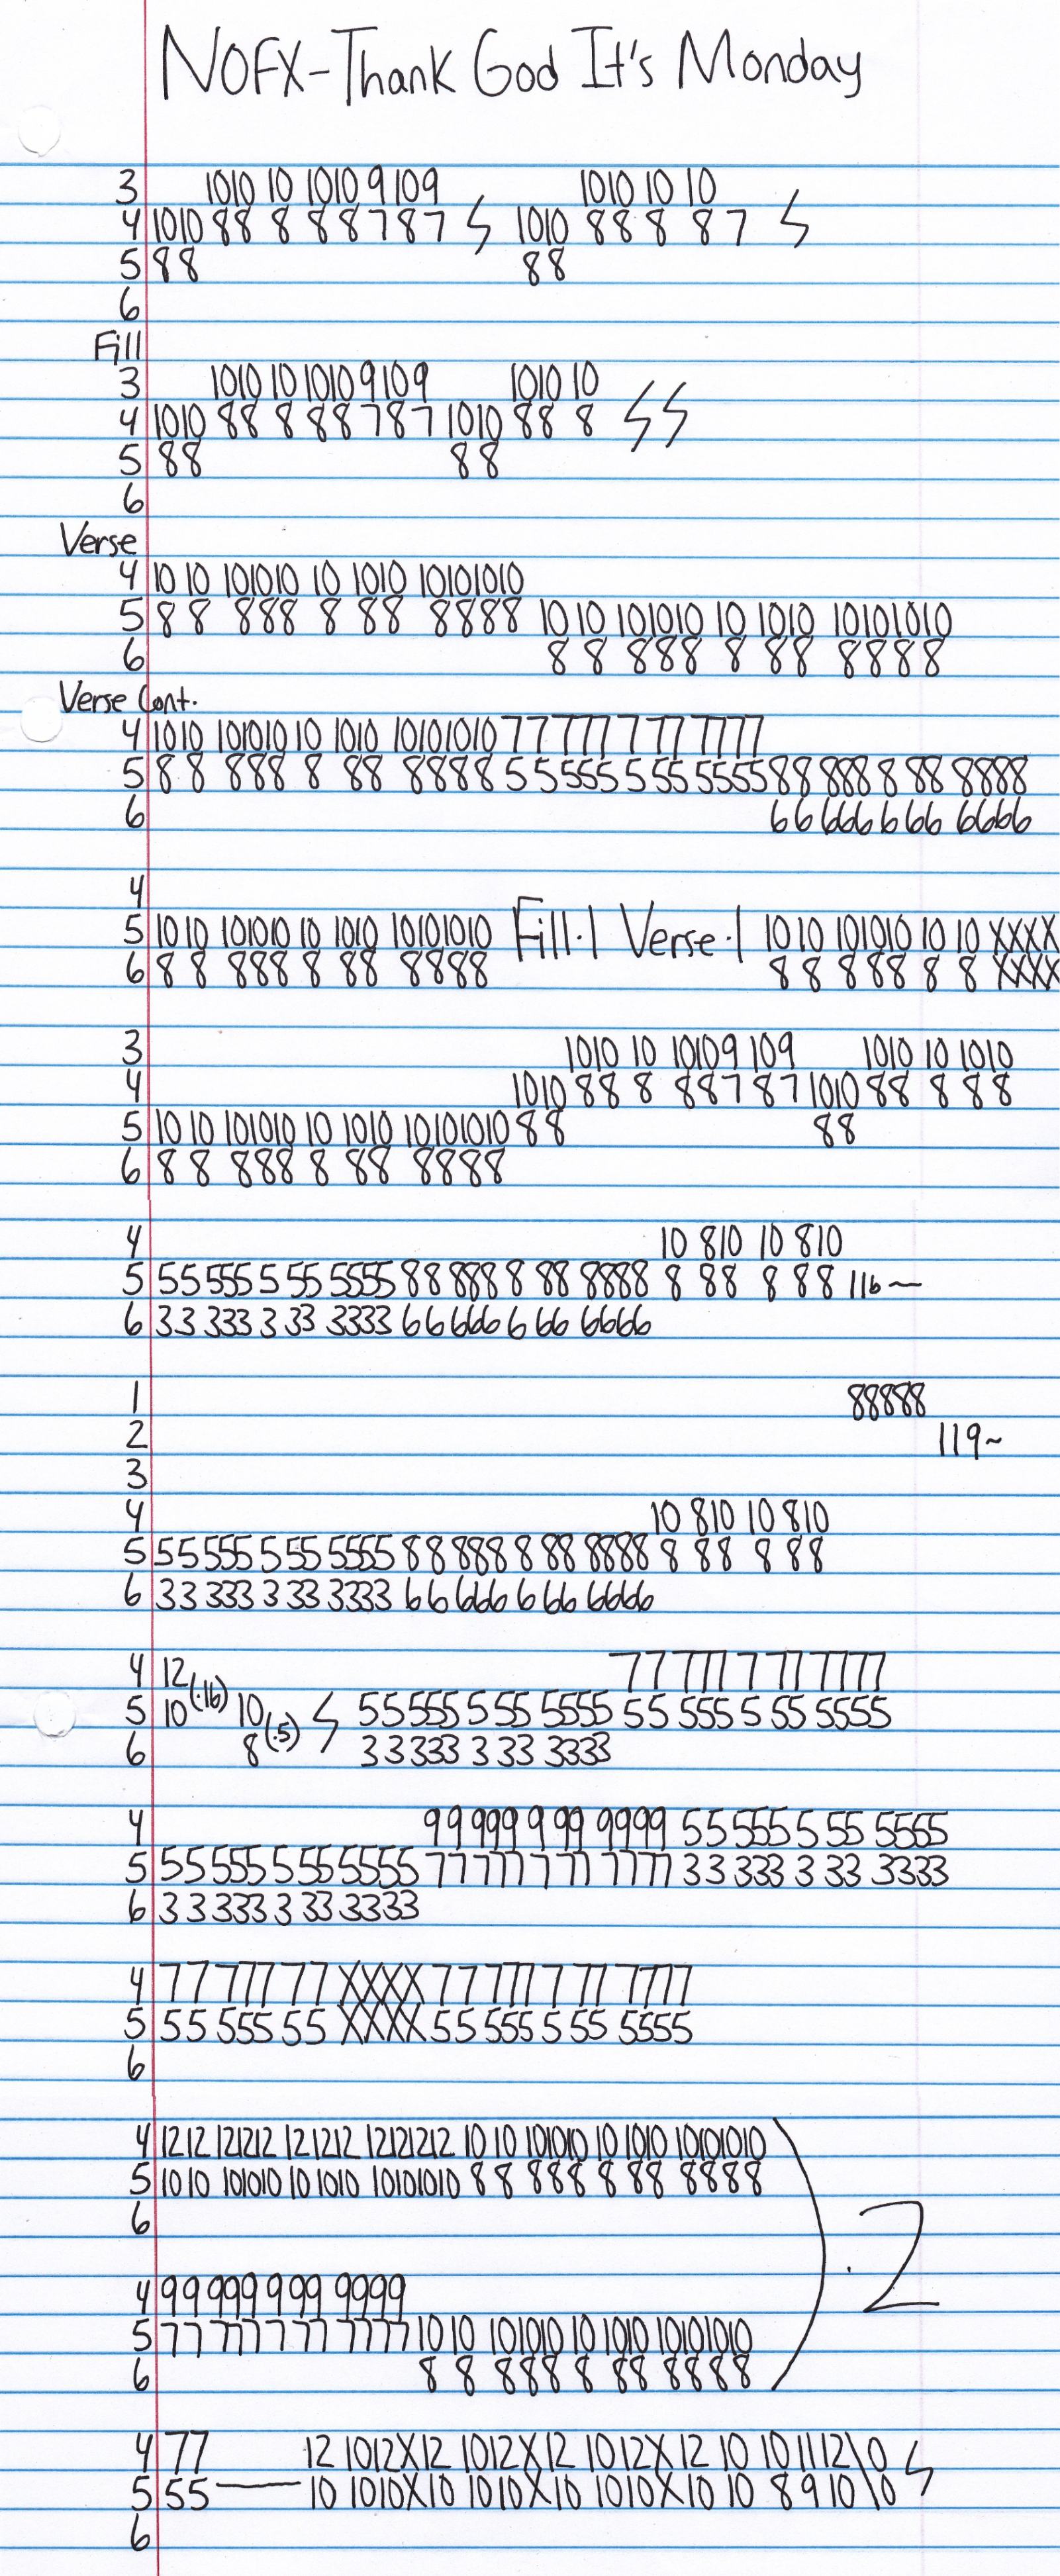 NOFX-Thank God It's Monday
3 1010 10 1010 9 109 1010 10 10
4 1010 88 8 8 8 7 8 7 1010 88 8 8 7
5 88 88
6
Fill
3 1010 10 1010 9 109 1010 10
4 1010 88 8 88 7 8 7 1010 88 8
5 88 88
6
Verse
4 10 10 101010 10 1010 10101010
5 8 8 888 8 88 8888 10 10 101010 10 1010 10101010
6 8 8 888 8 88 8888
Verse Cont.
4 1010 101010 10 1010 10101010 77 777 7 77 7777
5 8 8 888 8 88 8888 55 555 5 55 5555 88 888 8 88 8888
6 66 666 6 66 6666
4
5 1010 101010 10 1010 10101010 Fill·1 Verse·1 10 10 101010 10 10 XXXX
6 8 8 888 8 88 8888 8 8 8 88 8 8 XXXX
3 1010 10 10109 109 1010 10 1010
4 1010 88 8 887 87 1010 88 8 88
5 10 10 101010 10 1010 10101010 88 88
6 8 8 888 8 88 8888
4 10 810 10 810
5 55 555 5 55 5555 88 888 8 88 8888 8 88 8 88 116—
6 33 333 3 33 3333 66 666 6 66 6666
1 88888
2 119~
3
4 10 810 10 810
5 55 555 5 55 5555 88 888 8 88 8888 8 88 8 88
6 33 333 3 33 3333 66 666 6 66 6666
4 12 77 777 7 77 7777
5 10 (·16) 10 55555 5 55 5555 55 555 5 55 5555
6 8 (·5) 33333 3 33 3333
4 99 999 9 99 9999 55 555 5 55 5555
5 55 555 5 55 5555 77 777 7 77 7777 33 333 3 33 3333
6 33333 3 33 3333
4 77 777 77 XXXX 77 777 7 77 7777
5 55 555 55 XXXX 55 555 5 55 5555
6
4 1212 121212 121212 12121212 10 10 101010 10 1010 10101010
5 1010 101010 10 1010 10101010 8 8 888 8 88 8888
6
·2
4 99 999 9 99 9999
5 77 777 7 77 7777 10 10 101010 10 1010 10101010
6 8 8 888 8 88 8888
4 77 12 1012X12 1012X12 1012X12 10 10 11 12\0
5 55— 10 1010X10 1010X10 1010X10 10 8 9 10\0
6